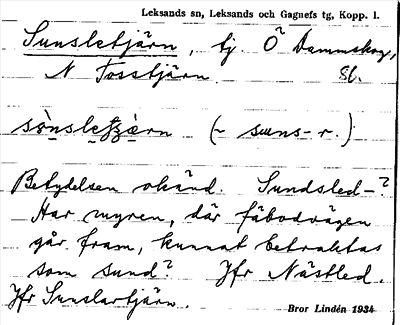 Leksands sn, Leksands och Gagnefs tg, Kopp. l.
Sunsletjärn, tj. Ö Dammskog,
N Tosstjärn. Sl.
Betydelsen okänd. Sundsled-?
Har myren, där fäbodvägen
går fram, kunnat betraktas
som sund? Jfr Nästled.
Jfr Sunslartjärn.
Bror Lindén 1934